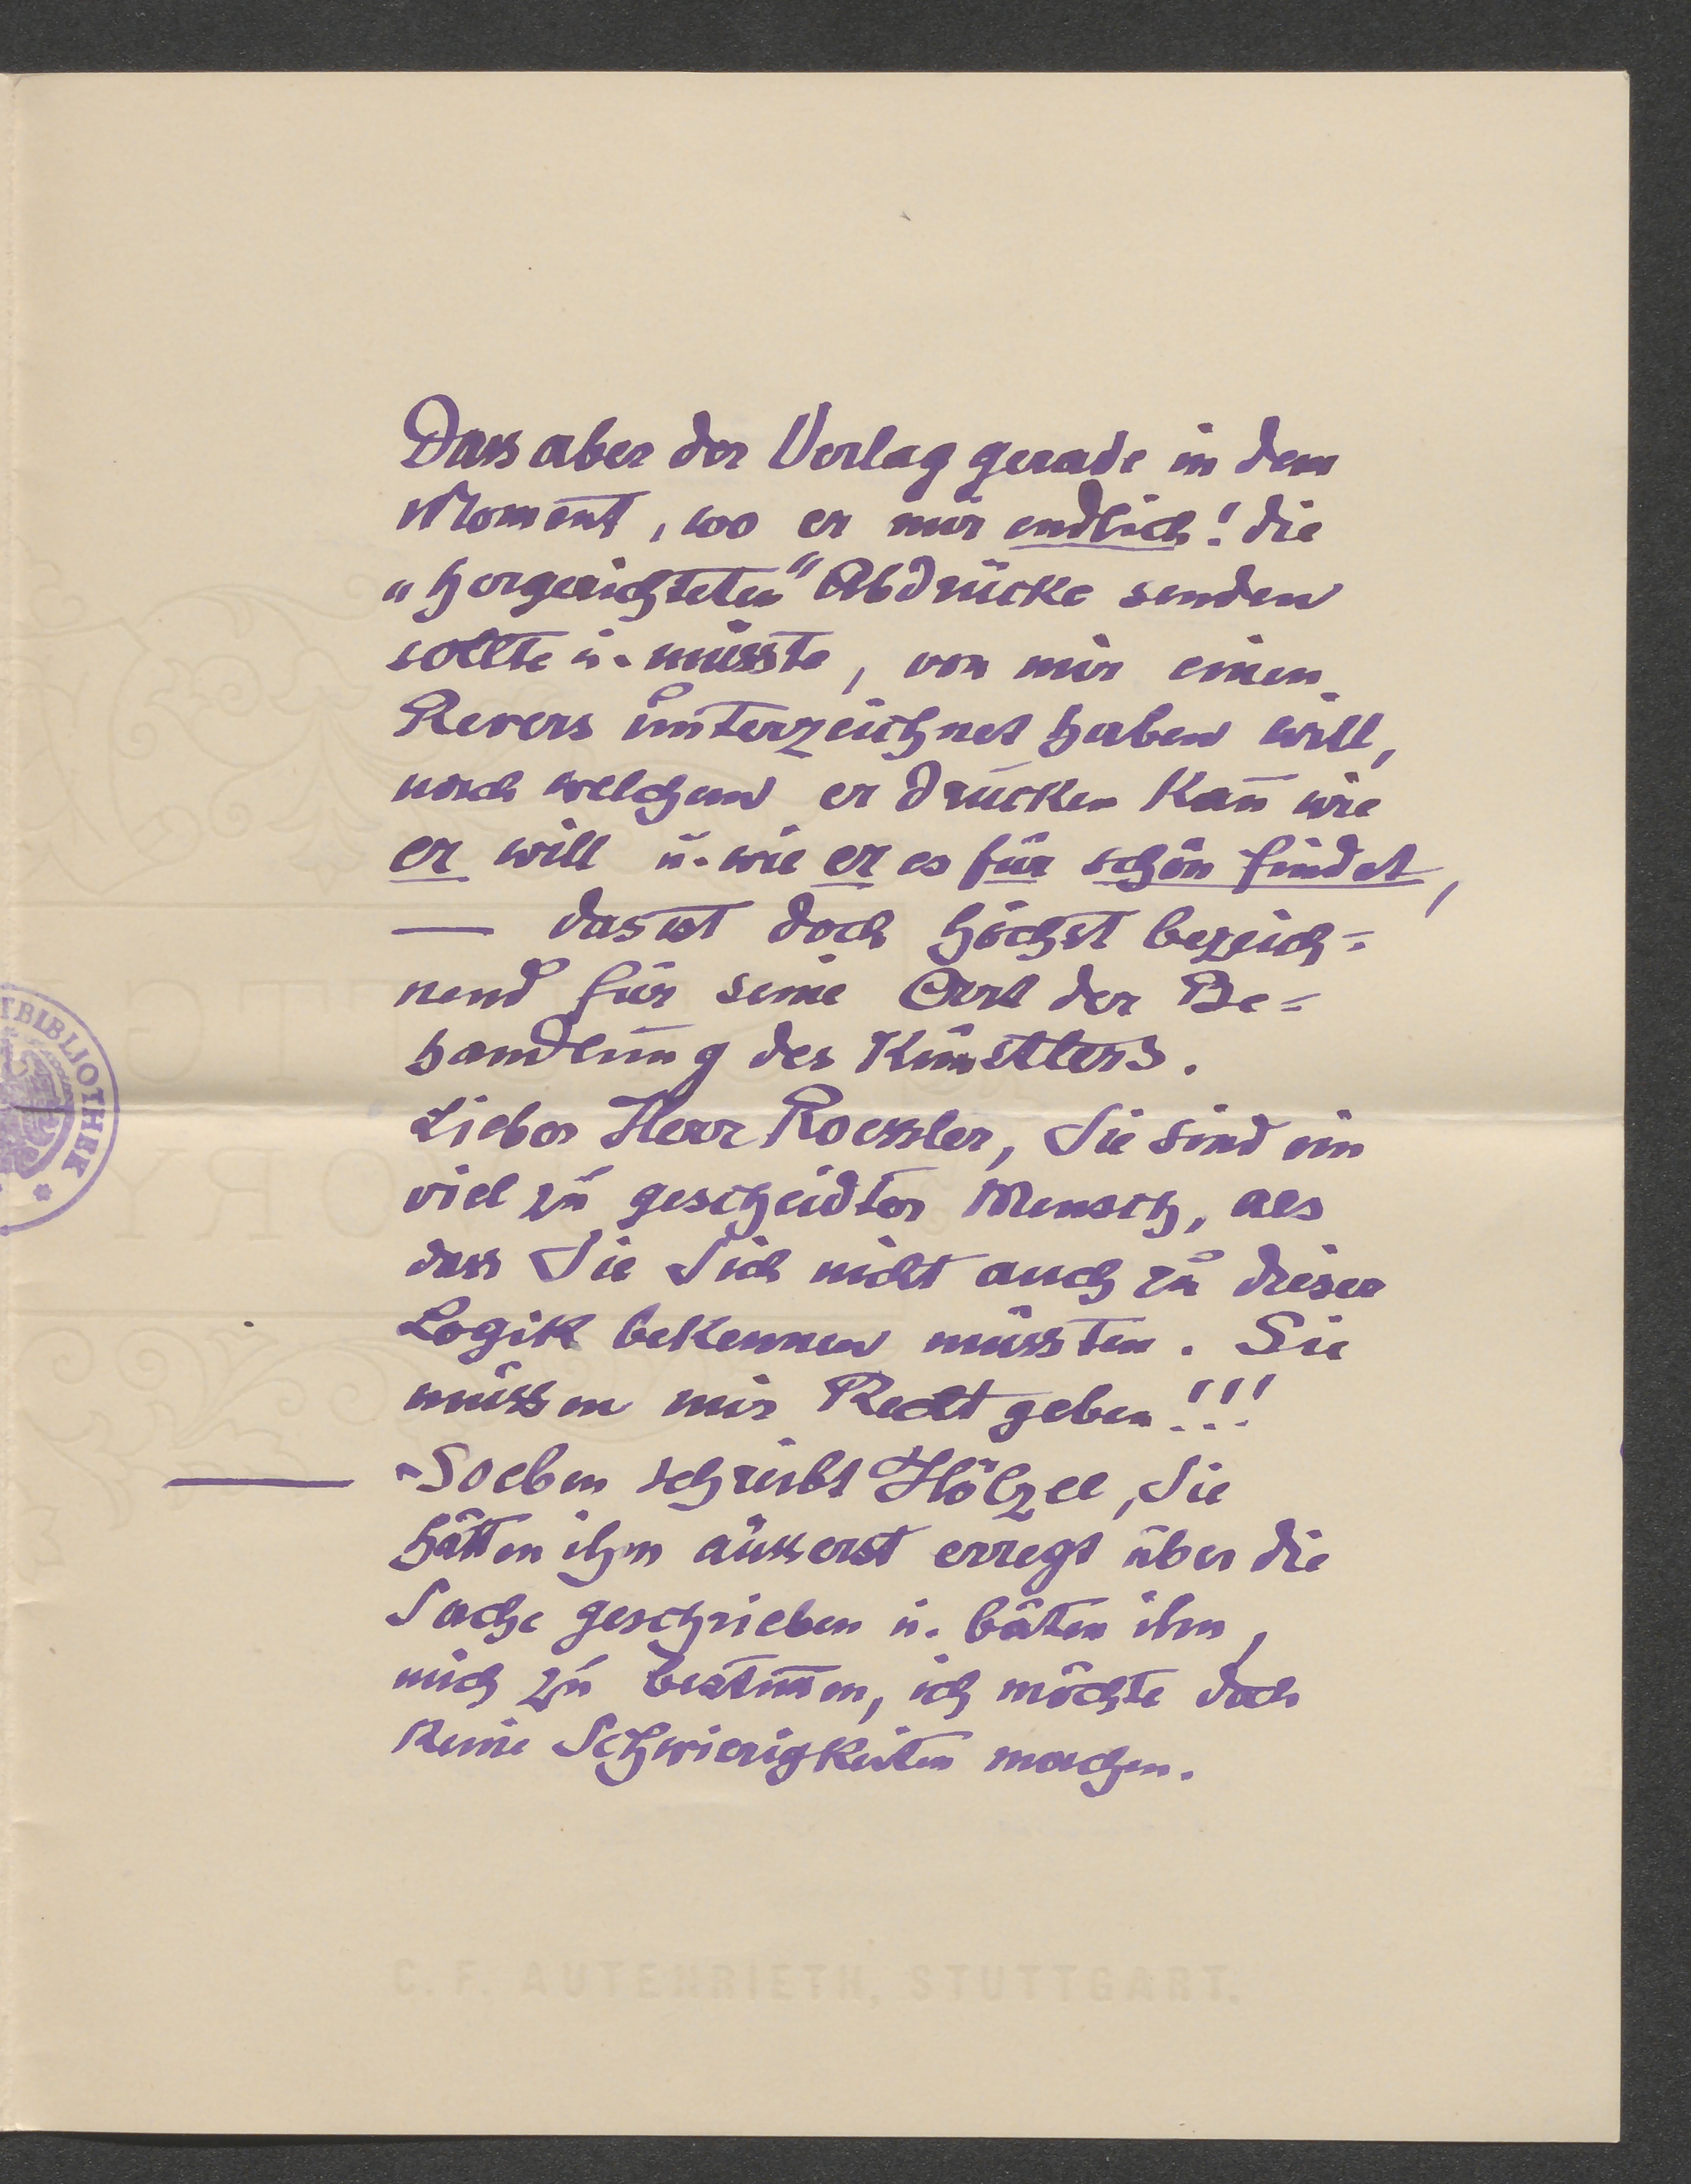 Dass aber der Verlag gerade in dem
Moment, wo er mir endlich! die
„hergerichteten" Abdrücke senden
sollte u. müsste, von mir einen
Revers unterzeichnet haben will,
nach welchem er drucken kan̄ wie
er will u. wie er es für schön findet,
— das ist doch höchst bezeich=
nend für seine Art der Be=
handlung des Künstlers.
Lieber Herr Roessler, Sie sind ein
viel zu gescheidter Mensch, als
dass Sie Sich nicht auch zu dieser
Logik bekennen müssten. Sie
müssen mir Recht geben!!!
— Soeben schreibt Hölzel, Sie
hätten ihm äusserst erregt über die
Sache geschrieben u. bäten ihn,
mich zu bestim̄en, ich möchte doch
keine Schwierigkeiten machen.
BIBLIOTHEK
C. F. AUTENRIETH, STUTTGART.